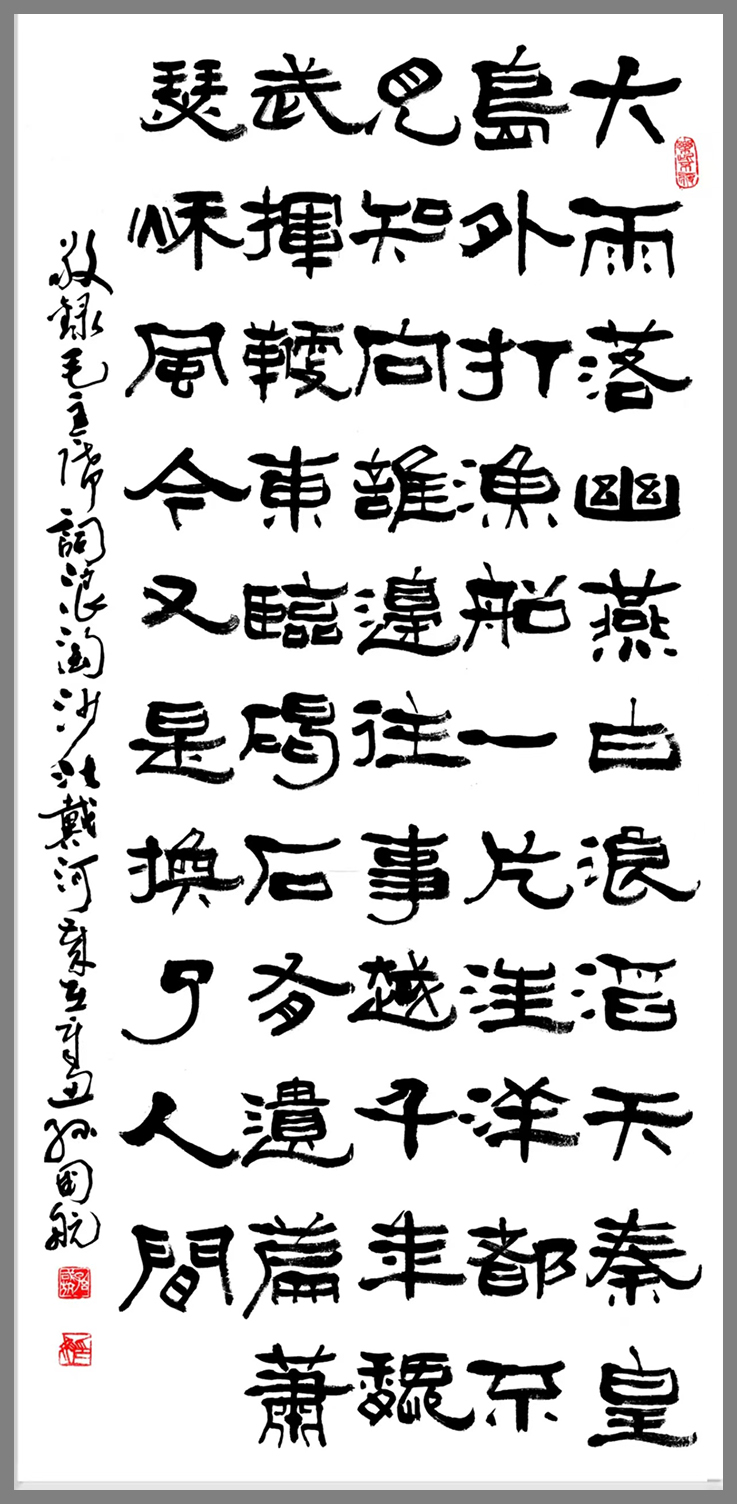 大雨落幽燕白浪滔天秦皇
島外打漁船一片汪洋都不
見知向誰邊往事越千年魏
武揮鞭東臨碣石有遺篇蕭
瑟秋風今又是換了人間
敬錄毛主席詞浪淘沙北戴河歲在孫國航